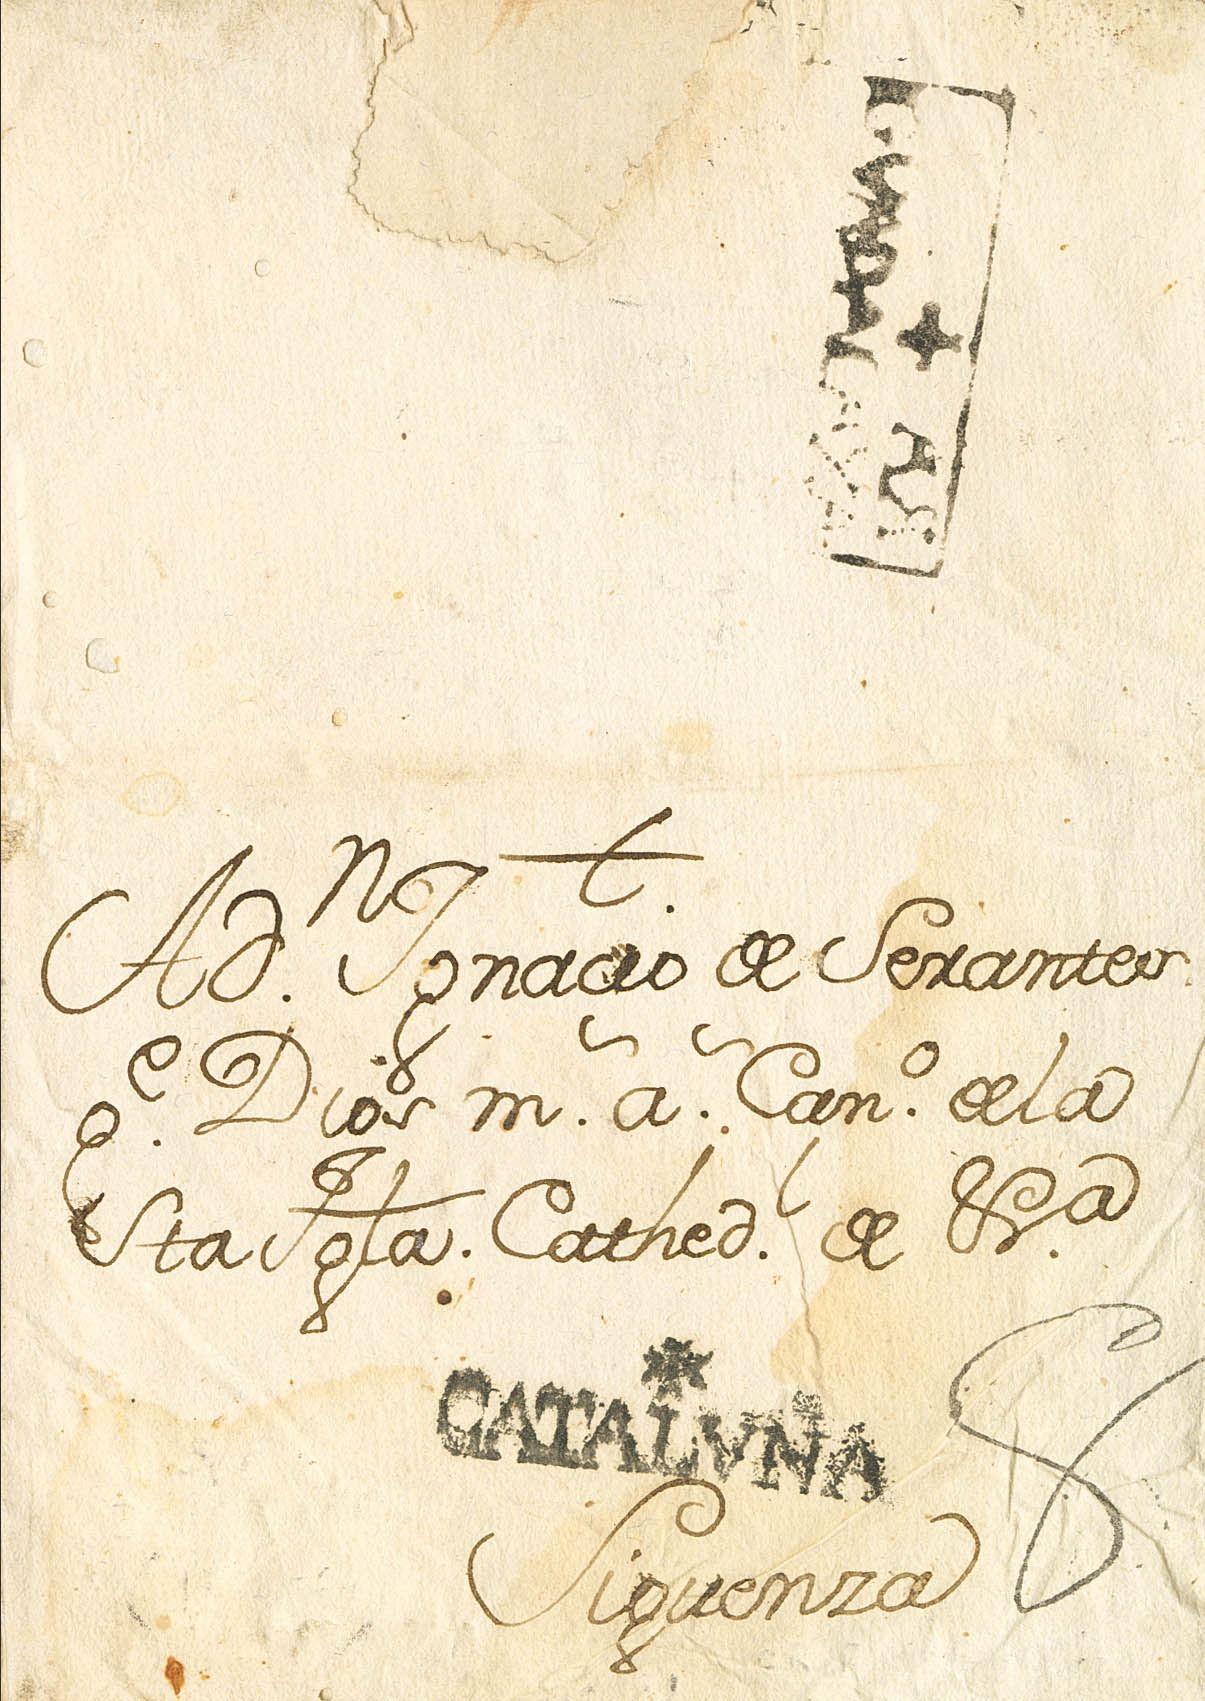 A d.ⁿ Ignacio de Serantes
g.ᵉ Dios m. a. Can.º de la
Sta Igla. Cathed.ˡ de
CATALUÑA
8
Siguenza